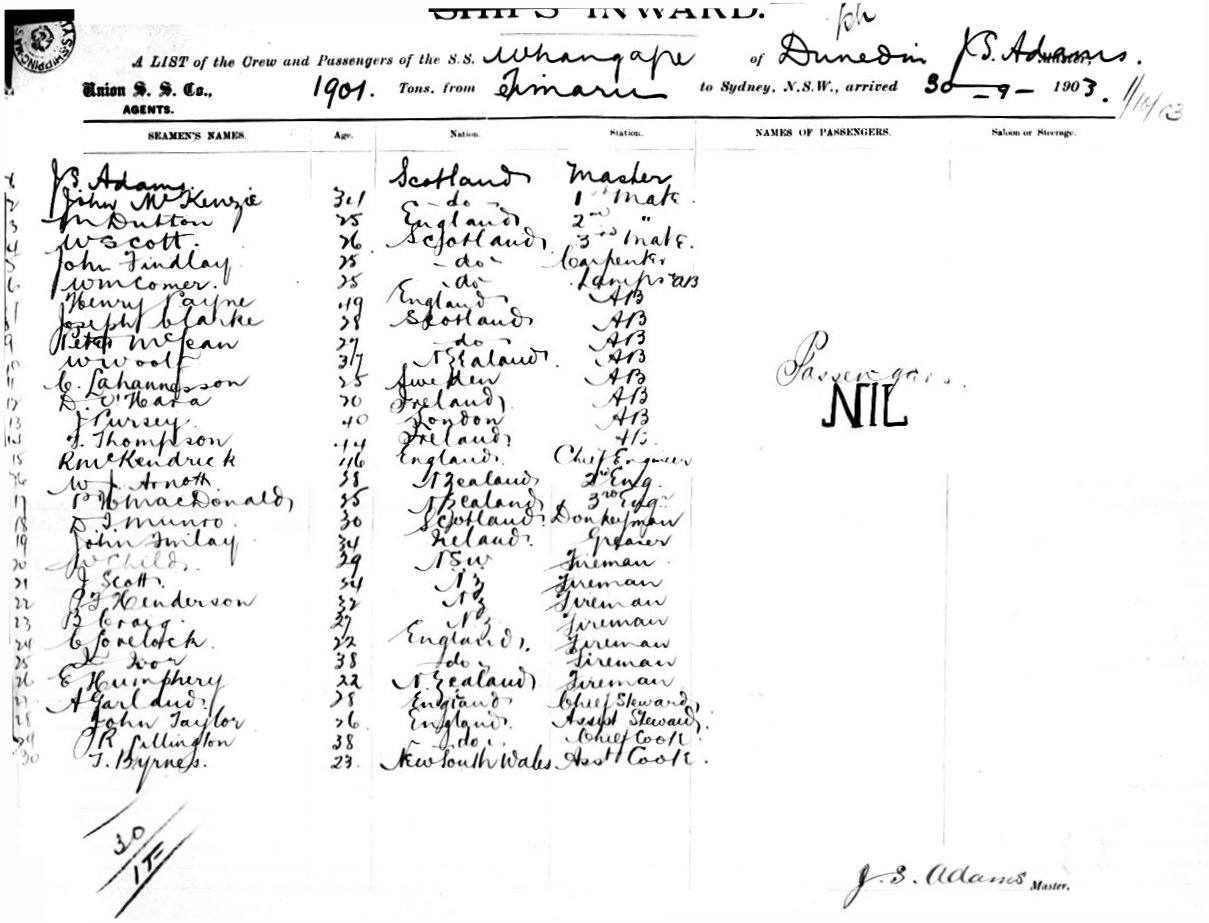 SHIPS INWARD.
A LIST of the Crew and Passengers of the S.S. Whangape of Dunedin J.S. Adams.
Union S. S. Co., 1901. Tons, from Timaru to Sydney, N.S.W., arrived 30 - 9 - 1903. 1/10/03
AGENTS.
SEAMEN'S NAMES. Age. Nation. Station. NAMES OF PASSENGERS. Saloon or Steerage.
1 J.S. Adams. Scotland Master
2 John McKenzie 34 - do - 1st Mate
3 M Dutton 25 England 2nd "
4 W Scott. 26 Scotland 3rd Mate.
5 John Findlay 25 - do - Carpenter
6 Wm Comer. 25 - do - Lamps AB
7 Henry Payne 49 England AB
8 Joseph Clarke 28 Scotland AB
9 Peter McLean 27 - do - AB
10 W Woolf 37 N Zealand AB
Passengers.
11 C. Lahannesson 25 Sweden AB
12 D. O'Hara 20 Ireland AB
NIL
13 J Pursey 40 London AB
14 J. Thompson 44 Ireland AB.
15 R McKendrick 46 England Chief Engineer
16 W J. Arnott 38 N Zealand 2nd Eng.
17 P H MacDonald 25 N Zealand 3rd Eng.
18 D. J Munro. 30 Scotland Donkeyman
19 John 34 Ireland. Greaser
20 W Child. 29 N.S.W Fireman.
21 J Scott. 34 N Z Fireman
22 Henderson 32 N Z Fireman
23 B Craig. 27 N Z Fireman
24 C Lovelock. 22 England. Fireman
25 38 - do - Fireman
26 E Humphery 22 N. Zealand Fireman
27 A Garland 28 England Chief Steward,
28 John Taylor 26 England. Assist Steward,
29 R Lillington 38 - do - Chief Cook
30 T. Byrnes. 23 New South Wales Asst Cook.
30
J. S. Adams Master.